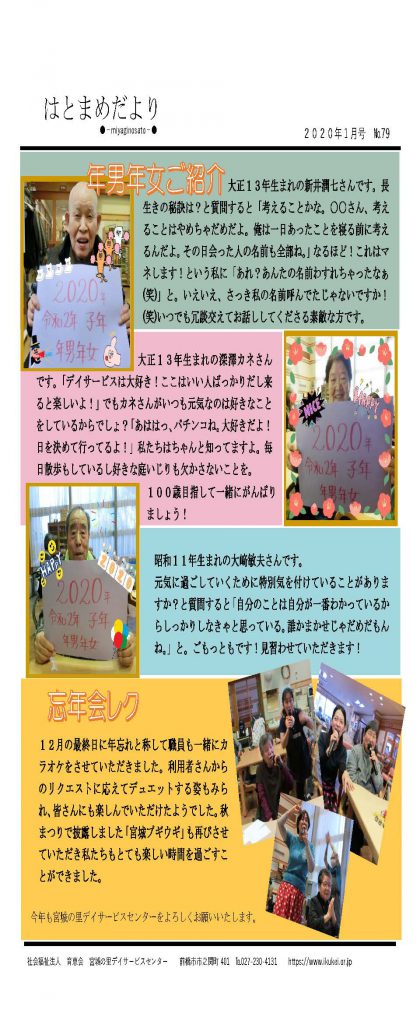 はとまめだより
●－miyaginosato－●
２０２０年１月号　№79
年男年女ご紹介
大正１３年生まれの新井潤七さんです。長
生きの秘訣は？と質問すると「考えることかな。〇〇さん、考え
ることはやめちゃだめだよ。俺は一日あったことを寝る前に考え
るんだよ。その日会った人の名前も全部ね。」なるほど！これはマ
ネします！という私に「あれ？あんたの名前わすれちゃったなぁ
(笑)」と。いえいえ、さっき私の名前呼んでたじゃないですか！
(笑)いつでも冗談交えてお話ししてくださる素敵な方です。
2020年
令和2年 子年
年男年女
大正１３年生まれの深澤カネさん
です。「デイサービスは大好き！ここはいい人ばっかりだし来
ると楽しいよ！」でもカネさんがいつも元気なのは好きなこと
をしているからでしょ？「あははっ、パチンコね。大好きだよ！
日を決めて行ってるよ！」私たちはちゃんと知ってますよ。毎
日散歩もしているし好きな庭いじりも欠かさないことを。
１００歳目指して一緒にがんばり
ましょう！
NICE
HAPPY
2020年
令和2年 子年
年男年女
HAPPY
2020
2020年
令和2年 子年
年男年女
昭和１１年生まれの大崎敏夫さんです。
元気に過ごしていくために特別気を付けていることがありま
すか？と質問すると「自分のことは自分が一番わかっているか
らしっかりしなきゃと思っている。誰かまかせじゃだめだもん
ね。」と。ごもっともです！見習わせていただきます！
忘年会レク
１２月の最終日に年忘れと称して職員も一緒にカ
ラオケをさせていただきました。利用者さんから
のリクエストに応えてデュエットする姿もみら
れ、皆さんにも楽しんでいただけたようでした。秋
まつりで披露しました「宮城ブギウギ」も再びさせ
ていただき私たちもとても楽しい時間を過ごすこ
とができました。
今年も宮城の里デイサービスセンターをよろしくお願いいたします。
社会福祉法人　育恵会　宮城の里デイサービスセンター　前橋市市之関町 401　℡027-230-4131　https://www.ikukei.or.jp